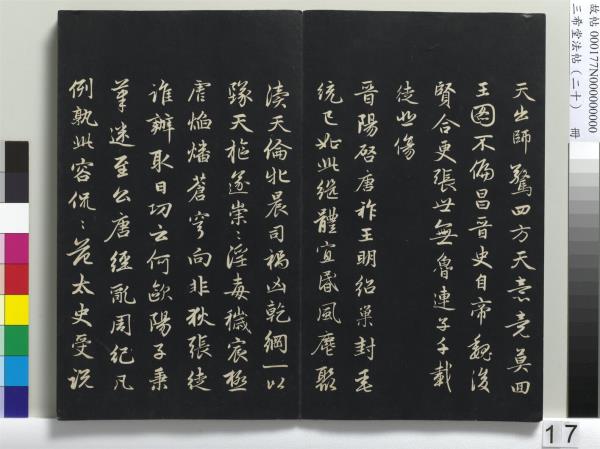 天出師驚四方天意竟莫回
王圖不偏昌晉史自帝魏後
賢合更張世無魯連子千載
徒悲傷
晉陽啓唐祚王明紹巢封垂
統已如此繼體宜昏風麀聚
瀆天倫牝晨司禍凶乾綱一以
墜天樞遂崇〻淫毒穢宸極
虐焰燔蒼穹向非狄張徒
誰辦取日功云何歐陽子秉
筆迷至公唐經亂周紀凡
例孰此容侃〻范太史受說
故帖 000177N000000000
三希堂法帖（二十） 冊
17